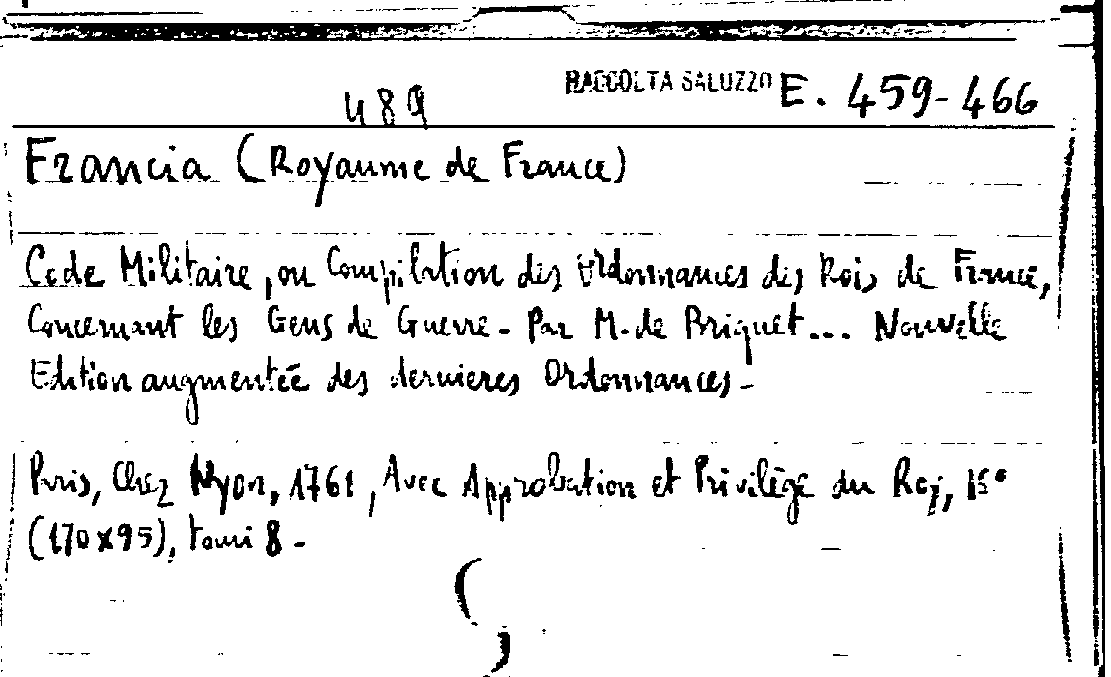 RACCOLTA SALUZZO E. 459-466
489
Francia (Royaume de France)
Code Militaire, ou Compilation des Ordonnances des Rois de France,
Concernant les Gens de Guerre - Par M. de Briquet... Nouvelle
Edition augmentée des dernieres Ordonnances -
Paris, Chez Nyon, 1761, Avec Approbation et Privilège du Roy,
(170x95), tomi 8 -